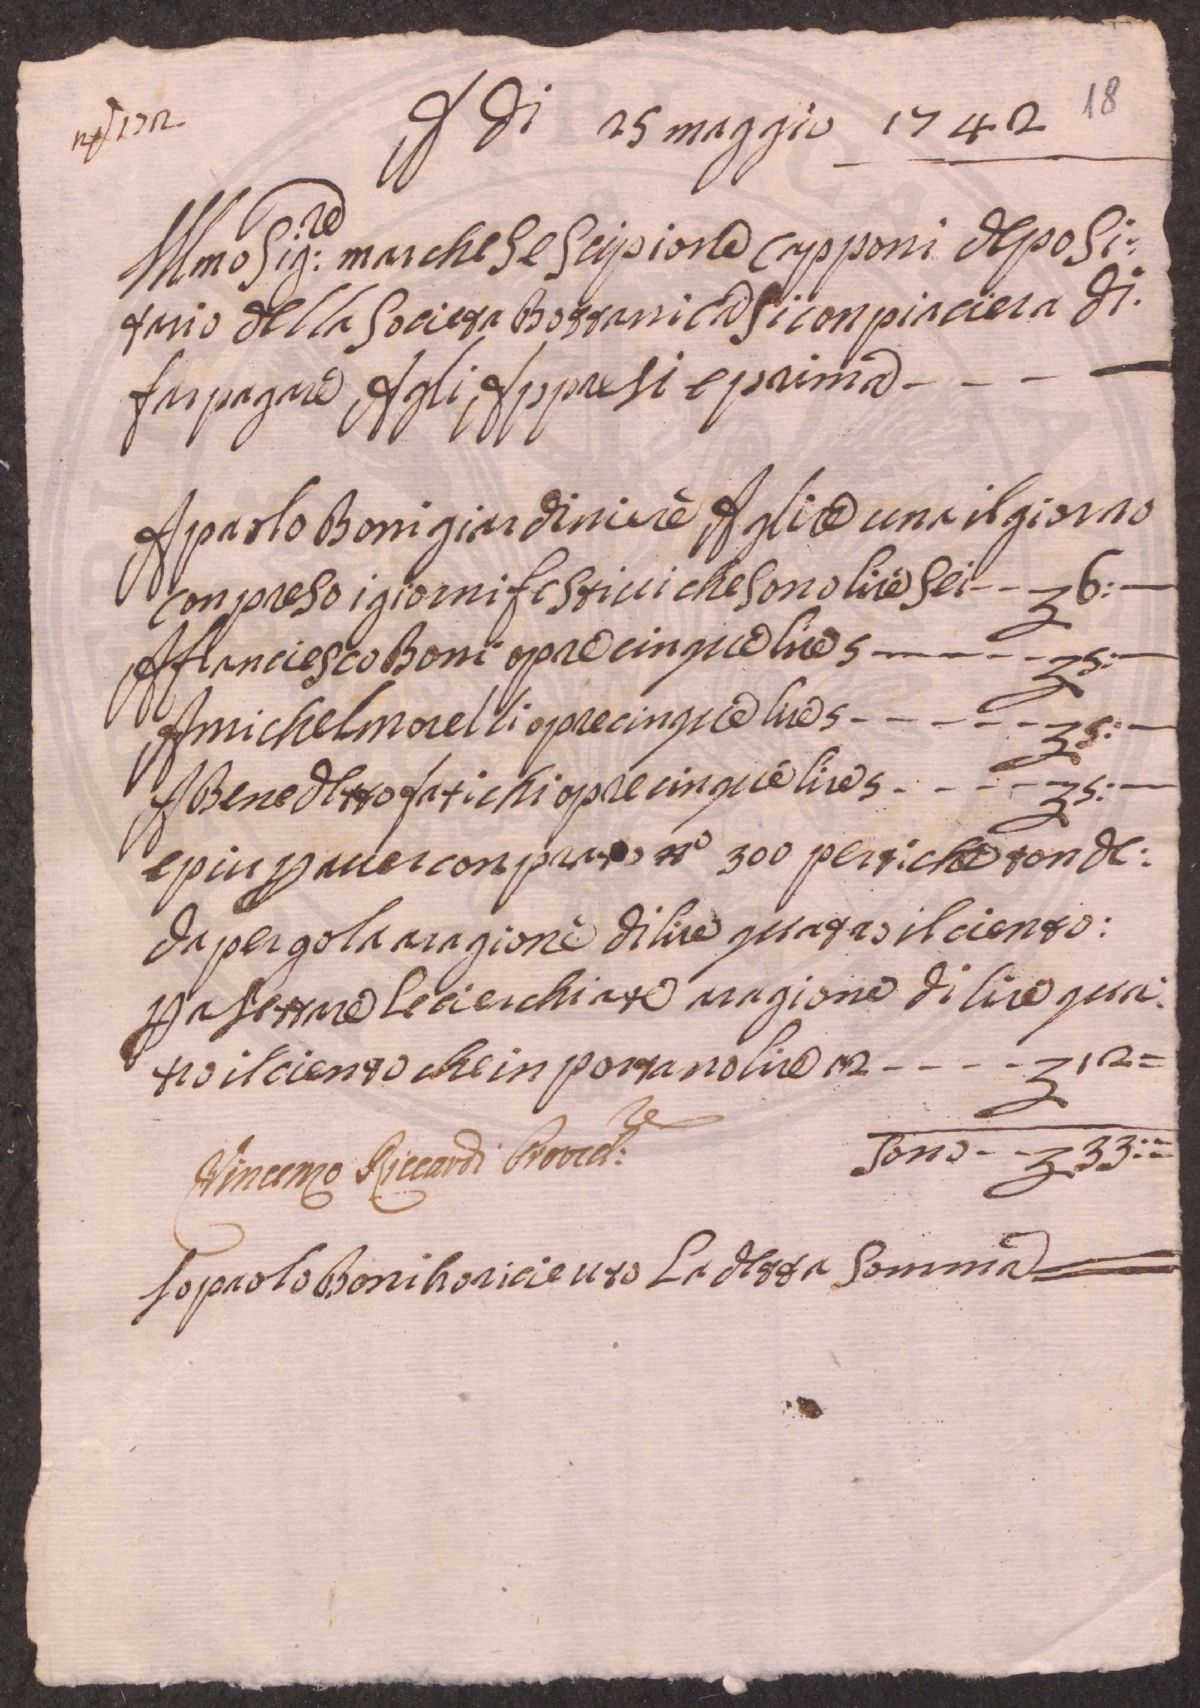 n° 172
18
A Di 25 maggio 1742
Illmo Sig:re marchese Scipione capponi deposi:
tario della Societa Bottanica Si conpiaciera di:
far pagare Agli Appresi e prima - - - —
A paolo Boni giardiniere A glire una il giorno
conpreso i giorni festiui che sono lire sei - - ʒ 6: —
A franciesco Boni opre cinque lire 5 - - - - - ʒ 5: —
A michel morelli opre cinque lire 5 - - - - - - ʒ 5: —
A Benedetto fatichi opre cinque lire 5 - - - - ʒ 5: —
e piu p auer conprato n° 300 pertiche tonde:
da pergola a ragione di lire quatro il ciento:
p asettare le cierchiate a ragione di lire qua:
tro il ciento che in portano lire 12 - - - - ʒ 12 =
Sono - - ʒ 33: =
Vincenzo Riccardi Proved:re
Io paolo Boni ho riceuto La detta Somma